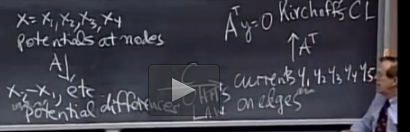 x = x₁, x₂, x₃, x₄
potentials at nodes
A ↓
x₂-x₁, etc
potential differences
Aᵀy=0 Kirchoff's CL
↑ Aᵀ
currents y₁ y₂ y₃ y₄ y₅
on edges